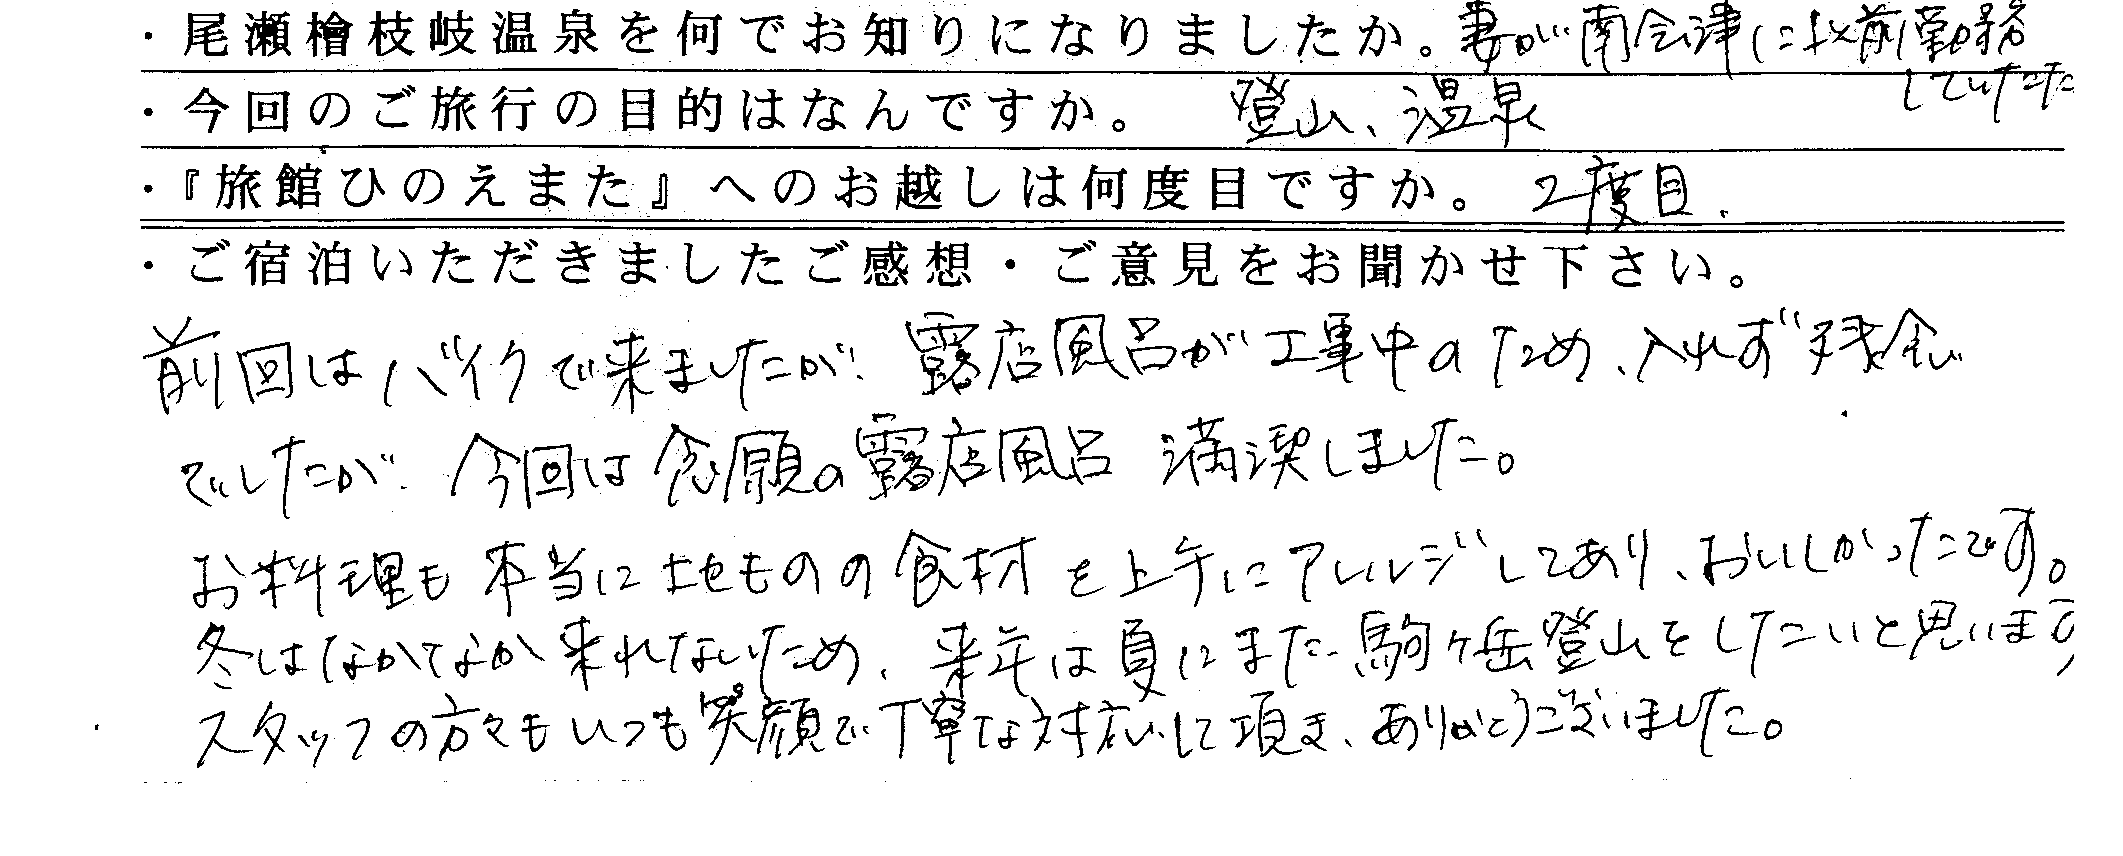 ・尾瀬檜枝岐温泉を何でお知りになりましたか。妻が南会津に以前勤務
していたため
・今回のご旅行の目的はなんですか。 登山、温泉
・『旅館ひのえまた』へのお越しは何度目ですか。 2度目.
・ご宿泊いただきましたご感想・ご意見をお聞かせ下さい。
前回はバイクで来ましたが、露店風呂が工事中のため、入れず残念
でしたが、今回は念願の露店風呂 満喫しました。
お料理も本当に土地ものの食材を上手にアレンジしてあり、おいしかったです。
冬はなかなか来れないため、来年は夏にまた駒ヶ岳登山をしたいと思います。
スタッフの方々もいつも笑顔で丁寧な対応して頂き、ありがとうございました。